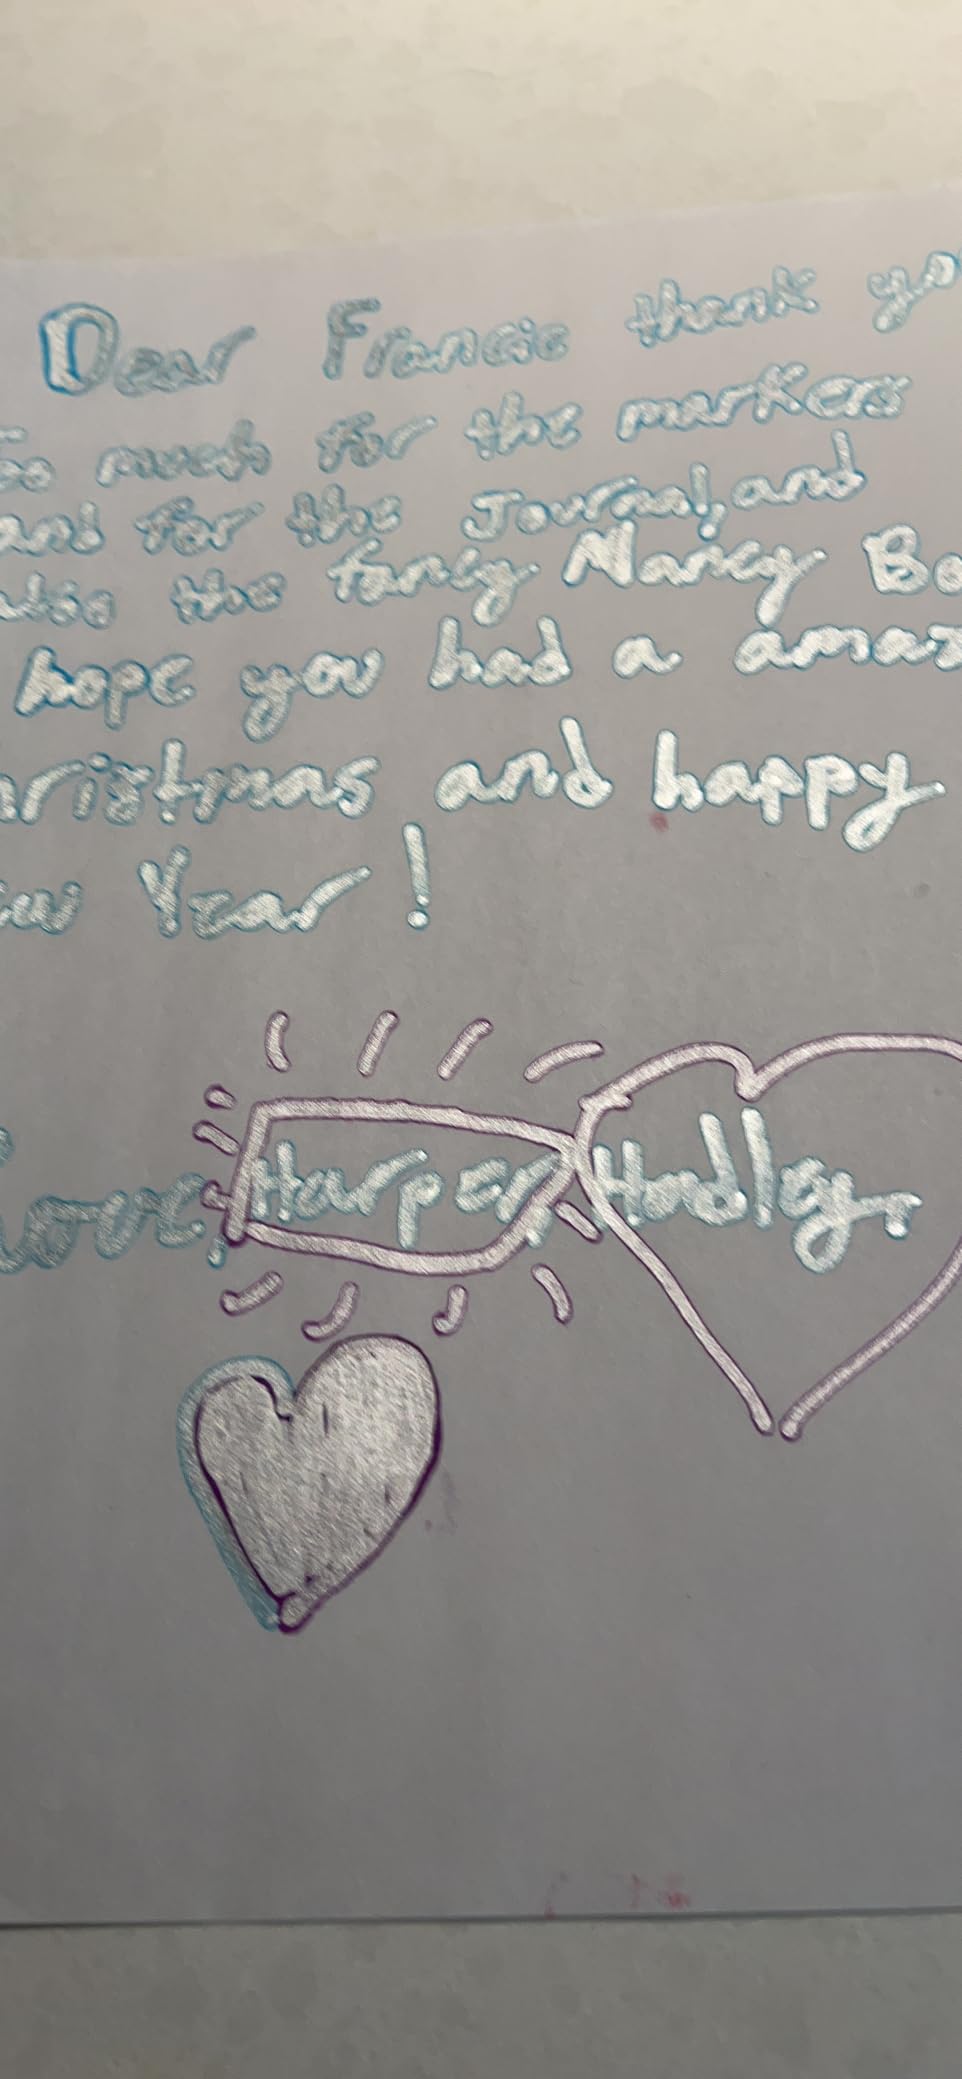 Dear Francie thank yo
so much for the markers
and for the Journal, and
also the fancy Nancy Bo
hope you had a amaz
hristmas and happy
ew Year!
Love, Harper, Hadley.